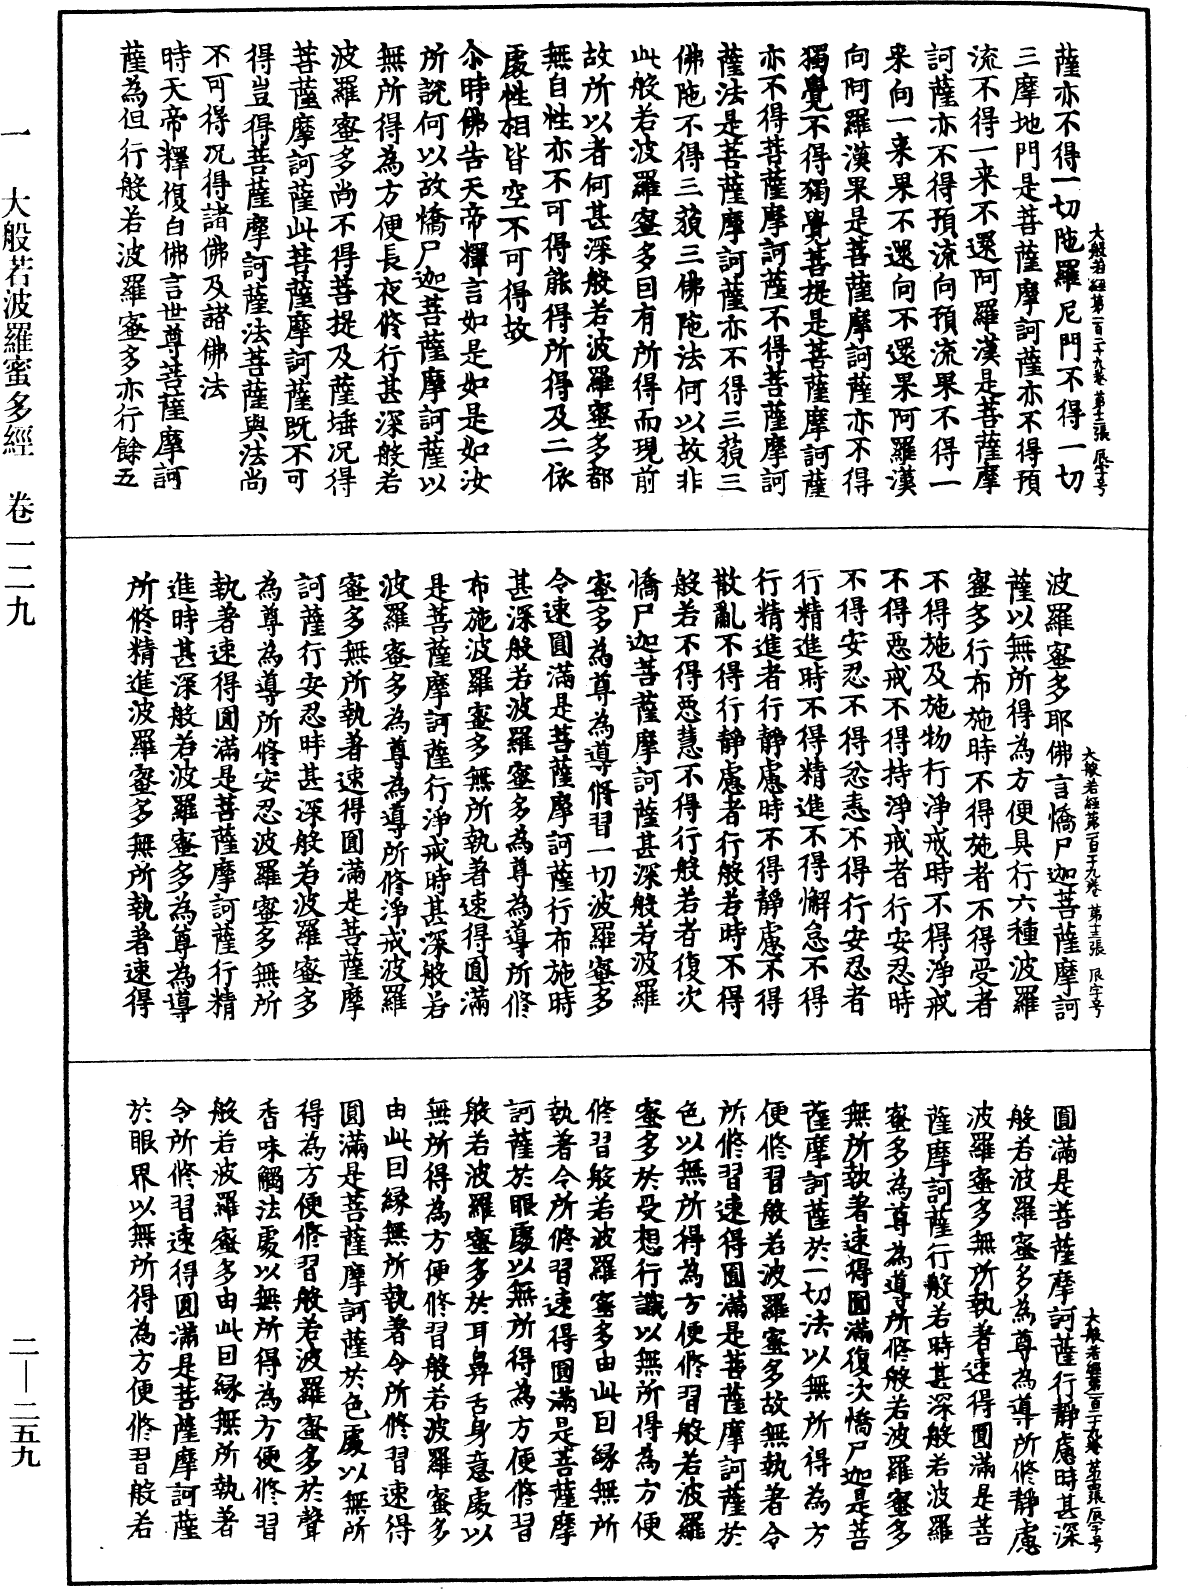 大般若經第一百二十九卷 第十二張 辰字号
薩亦不得一切陁羅尼門不得一切
三摩地門是菩薩摩訶薩亦不得預
流不得一来不還阿羅漢是菩薩摩
訶薩亦不得預流向預流果不得一
来向一来果不還向不還果阿羅漢
向阿羅漢果是菩薩摩訶薩亦不得
獨覺不得獨覺菩提是菩薩摩訶薩
亦不得菩薩摩訶薩不得菩薩摩訶
薩法是菩薩摩訶薩亦不得三藐三
佛陁不得三藐三佛陁法何以故非
此般若波羅蜜多曰有所得而現前
故所以者何甚深般若波羅蜜多都
無自性亦不可得能得所得及二依
處性相皆空不可得故
尒時佛告天帝釋言如是如是如汝
所說何以故憍尸迦菩薩摩訶薩以
無所得為方便長夜修行甚深般若
波羅蜜多尚不得菩提及薩埵况得
菩薩摩訶薩此菩薩摩訶薩既不可
得豈得菩薩摩訶薩法菩薩與法尚
不可得况得諸佛及諸佛法
時天帝釋復白佛言世尊菩薩摩訶
薩為但行般若波羅蜜多亦行餘五
大般若經第一百二十九卷 第十三張 辰字号
波羅蜜多耶佛言憍尸迦菩薩摩訶
薩以無所得為方便具行六種波羅
蜜多行布施時不得施者不得受者
不得施及施物行淨戒時不得淨戒
不得惡戒不得持淨戒者行安忍時
不得安忍不得忿恚不得行安忍者
行精進時不得精進不得懈怠不得
行精進者行靜慮時不得靜慮不得
散亂不得行靜慮者行般若時不得
般若不得惡慧不得行般若者復次
憍尸迦菩薩摩訶薩甚深般若波羅
蜜多為尊為導修習一切波羅蜜多
令速圓滿是菩薩摩訶薩行布施時
甚深般若波羅蜜多為尊為導所修
布施波羅蜜多無所執著速得圓滿
是菩薩摩訶薩行淨戒時甚深般若
波羅蜜多為尊為導所修淨戒波羅
蜜多無所執著速得圓滿是菩薩摩
訶薩行安忍時甚深般若波羅蜜多
為尊為導所修安忍波羅蜜多無所
執著速得圓滿是菩薩摩訶薩行精
進時甚深般若波羅蜜多為尊為導
所修精進波羅蜜多無所執著速得
大般若經第一百二十九卷 第十四張 辰字号
圓滿是菩薩摩訶薩行靜慮時甚深
般若波羅蜜多為尊為導所修靜慮
波羅蜜多無所執著速得圓滿是菩
薩摩訶薩行般若時甚深般若波羅
蜜多為尊為導所修般若波羅蜜多
無所執著速得圓滿復次憍尸迦是菩
薩摩訶薩於一切法以無所得為方
便修習般若波羅蜜多故無執著令
所修習速得圓滿是菩薩摩訶薩於
色以無所得為方便修習般若波羅
蜜多於受想行識以無所得為方便
修習般若波羅蜜多由此曰緣無所
執著令所修習速得圓滿是菩薩摩
訶薩於眼處以無所得為方便修習
般若波羅蜜多於耳鼻舌身意處以
無所得為方便修習般若波羅蜜多
由此曰緣無所執著令所修習速得
圓滿是菩薩摩訶薩於色處以無所
得為方便修習般若波羅蜜多於聲
香味觸法處以無所得為方便修習
般若波羅蜜多由此曰緣無所執著
令所修習速得圓滿是菩薩摩訶薩
於眼界以無所得為方便修習般若
一 大般若波羅蜜多經 卷一二九
二—二五九